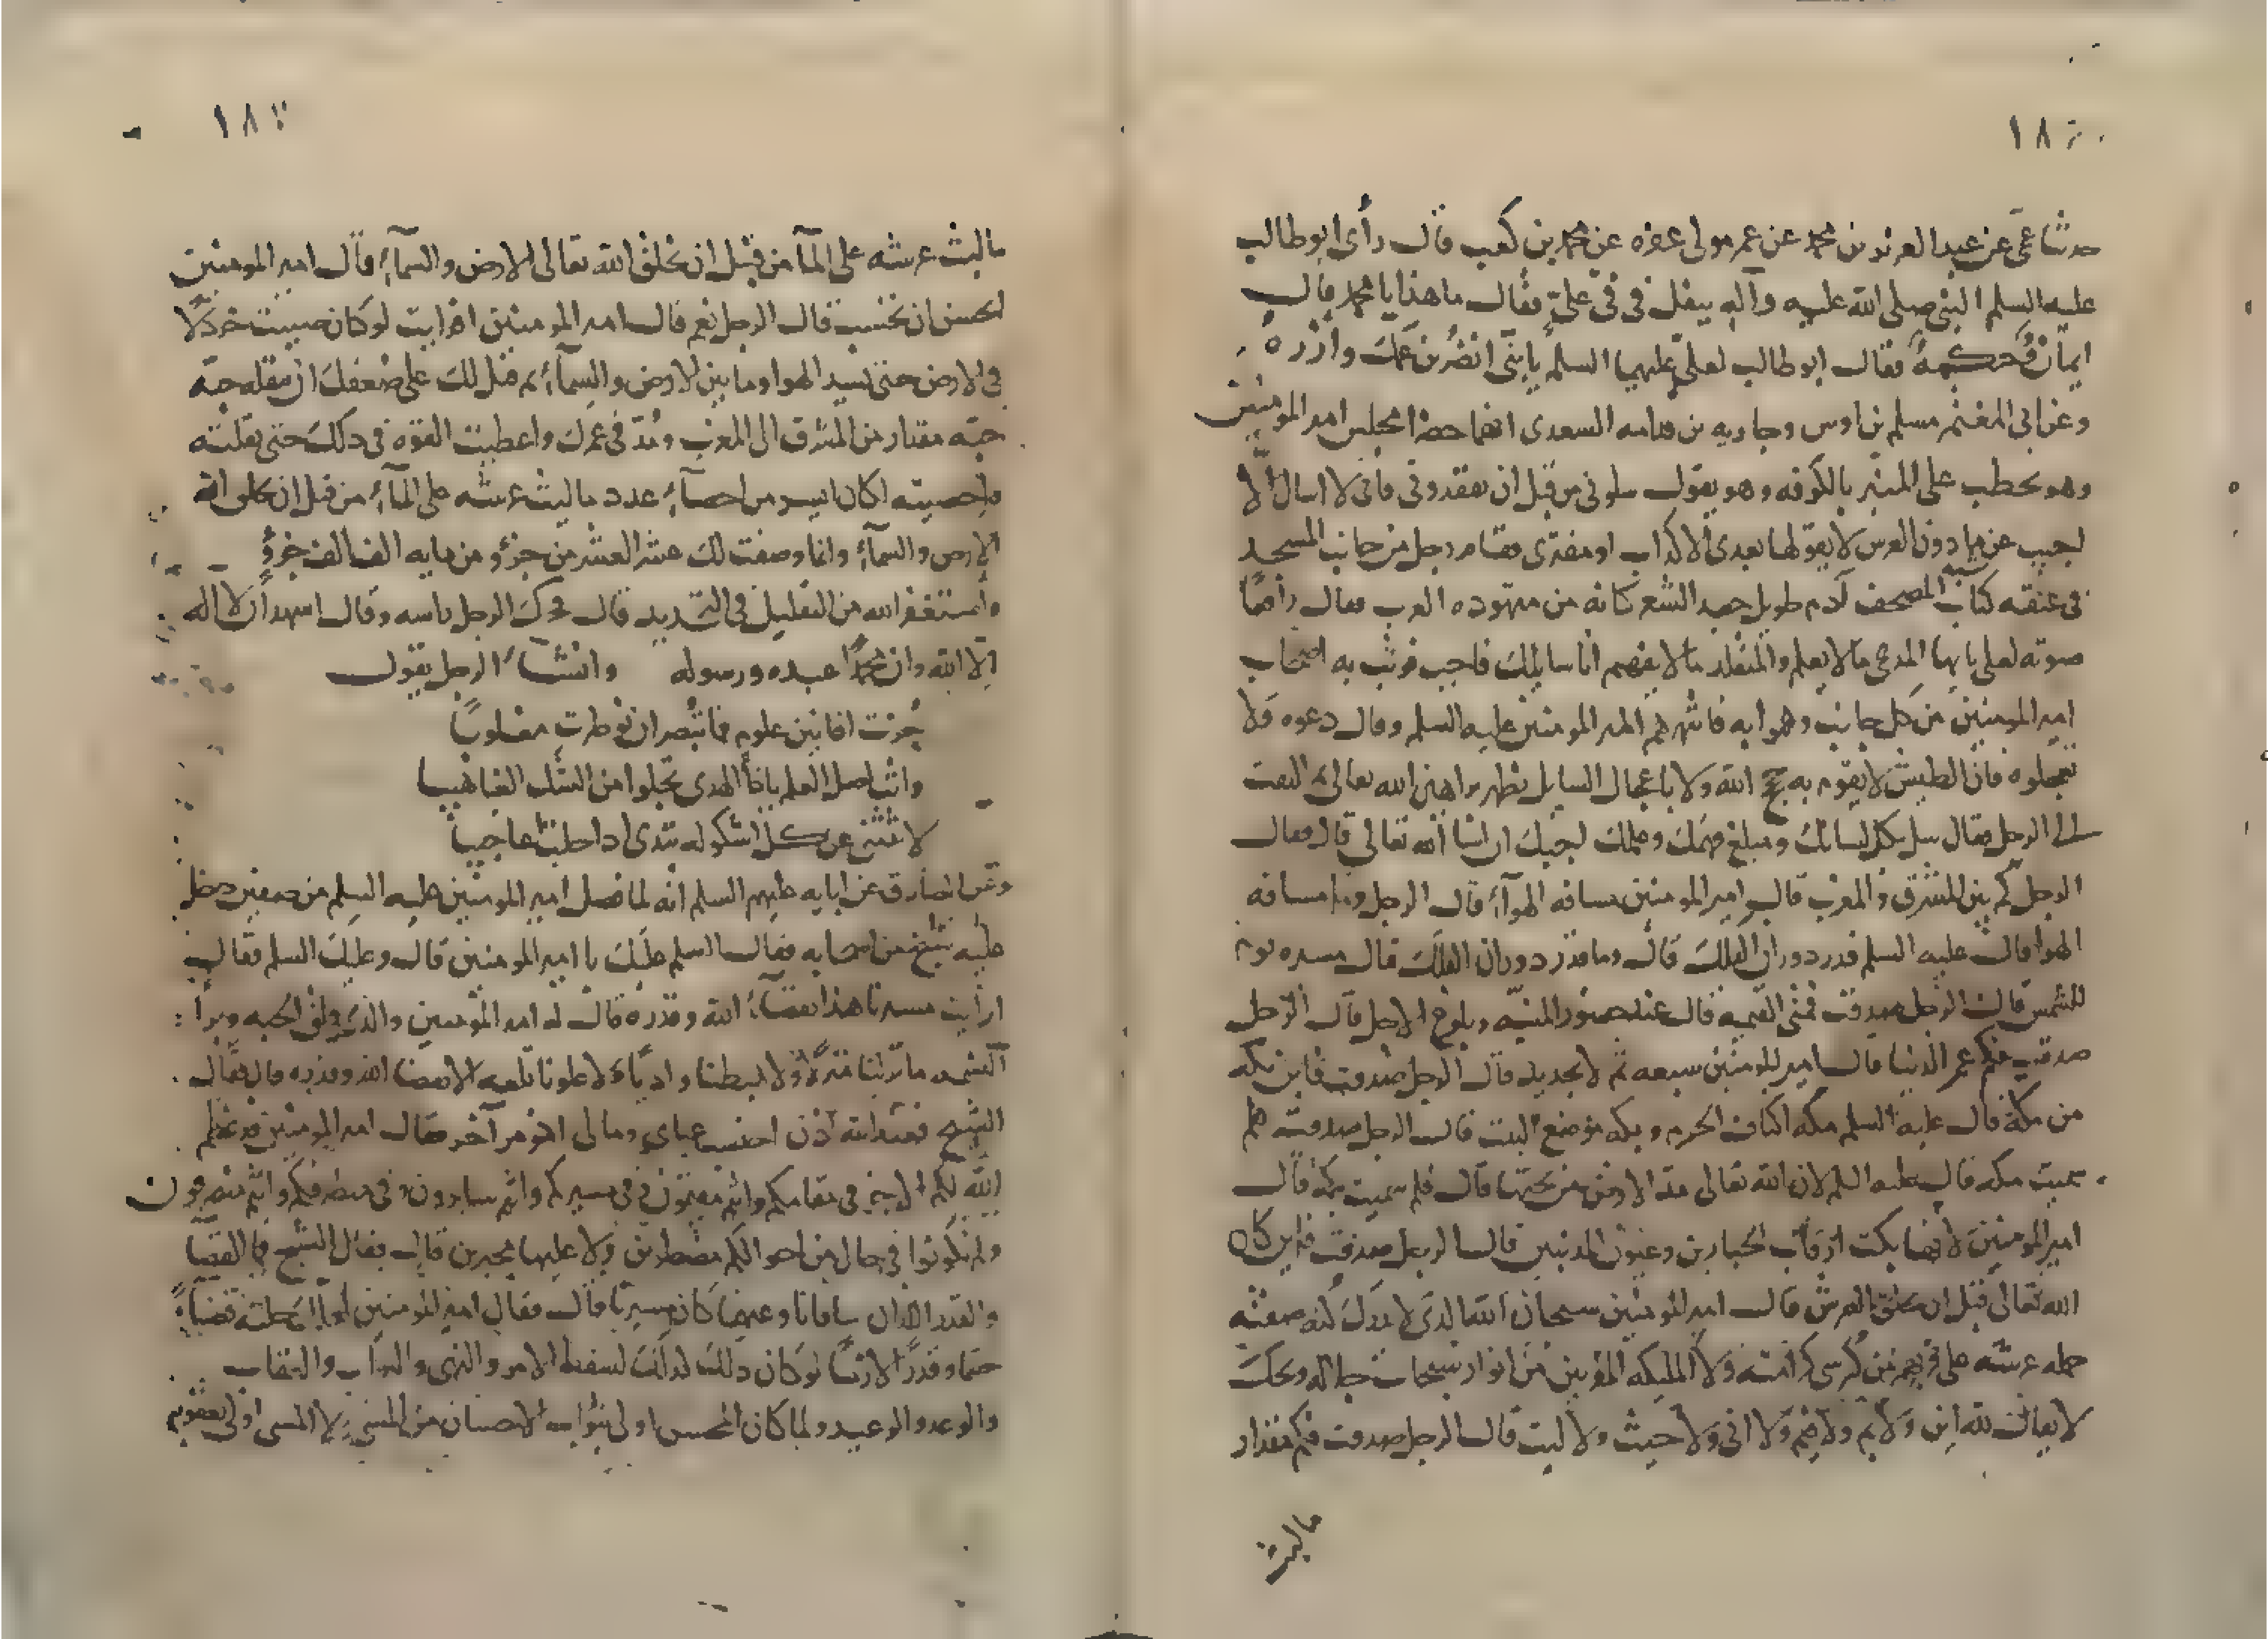 حدثنا عمي عن عبد العزيز بن محمد عن عمر مولى عفره عن محمد بن كعب قال رأى ابو طالب
عليه السلم النبي صلى الله عليه وآله يتفل في في علي فقال ما هذا يا محمد قال
ايمان وحكمة فقال ابو طالب لعلي عليهما السلم يا بني انصر بن عمك وآزره
وعن ابي المعتمر مسلم بن اوس وجاريه بن قدامه السعدي انهما حضرا مجلس امير المومنين
وهو يخطب على المنبر بالكوفه وهو يقول سلوني من قبل ان تفقدوني فاني لا اسال الا
اجيب عن ما دون العرش لا يقولها بعدي الا كذاب او مفتري فقام رجل من جانب المسجد
في عنقه كتاب المصحف آدم طويل جعد الشعر كانه من متهوده العرب فقال رافعا
صوته لعلي يا ايها المدعي ما لا يعلم والمتقلد ما لا يفهم انا سايلك فاجب فوثب به اصحاب
امير المومنين من كل جانب وهموا به فانتهرهم امير المومنين عليه السلم وقال دعوه ولا
تعجلوه فان الطيش لا يقوم به حجج الله ولا باعجال السايل تظهر براهين الله تعالى ثم التفت
الى الرجل فقال سل بكل لسانك ومبلغ فهمك وعلمك اجبك ان شا الله تعالى قال فقال
الرجل كم بين المشرق والمغرب قال امير المومنين مسافه الهوآء قال الرجل وما مسافه
الهوا قال عليه السلم قدر دوران الفلك قال وما قدر دوران الفلك قال مسيره يوم
للشمس قال الرجل صدقت فمتى القيمه قال عند حضور المنيه وبلوغ الاجل قال الرجل
صدقت فكم عمر الدنيا قال امير المومنين سبعه ثم لا تحديد قال الرجل صدقت فاين بكه
من مكة قال عليه السلم مكه اكناف الحرم وبكه موضع البيت قال الرجل صدقت فلم
سميت مكه قال عليه السلم لان الله تعالى مد الارض من تحتها قال فلم سميت بكه قال
امير المومنين لانها بكت رقاب الجبارين وعيون المذنبين قال الرجل صدقت فاين كان
الله تعالى قبل ان يخلق العرش قال امير المومنين سبحان الله الذي لا تدرك كنه صفته
حمله عرشه على قربهم من كرسي كرامته ولا المليكه المقربين من انوار سبحات جلاله ويحك
لا يقال لله اين ولا ثم ولا فيم ولا انى ولا حيث ولا ليت قال الرجل صدقت فكم مقدار
ما لبث
ما لبث عرشه على المآ من قبل ان يخلق الله تعالى الارض والسمآء قال امير المومنين
اتحسن ان تحسب قال الرجل نعم قال امير المومنين افرايت لو كان صبيت خردلا
في الارض حتى سد الهوا وما بين الارض والسمآء ثم قيل لك على ضعفك ان تنقله حبه
حبه مقدار من المشرق الى المغرب ومد في عمرك واعطيت القوه في ذلك حتى نقلته
واحصيته لكان ايسر من احصآء عدد ما لبث عرشه على المآء من قبل ان يخلق الله
الارض والسمآء وانما وصفت لك عشر العشر من جزؤ من مايه الف الف جزؤ
واستغفر الله من التقليل في التحديد قال فحرك الرجل راسه وقال اشهد ان لا اله
الا الله وان محمدا عبده ورسوله وانشا الرجل يقول
وانت اصل العلم يا ذا الهدى تجلوا من الشك الغياهيبا
وعن الصادق عن ابايه عليهم السلم انه لما فصل امير المومنين عليه السلم من صفين دخل
عليه شيخ من اصحابه فقال السلم عليك يا امير المومنين قال وعليك السلم فقال
ارأيت مسيرنا هذا بقضآء الله وقدره قال له امير المومنين والذي فلق الحبه وبرأ
النسمه ما نزلنا منزلا ولا هبطنا واديا ولا علونا تلعه الا بقضا الله وقدره قال فقال
الشيخ فعند الله اذن احتسب عناي وما لي اجر فقال امير المومنين قد عظم
الله لكم الاجر في مقامكم وانتم مقيمون وفي مسيركم وانتم سايرون وفي منصرفكم وانتم منصرفون
ولم تكونوا في حال من احوالكم مضطرين ولا عليها مجبرين قال فقال الشيخ فما القضا
والقدر اللذان ساقانا وعنهما كان مسيرنا قال فقال امير المومنين لعلك ظننته قضآء
حتما وقدرا لازما لو كان ذلك كذلك لسقط الامر والنهي والثواب والعقاب
والوعد والوعيد ولما كان المحسن اولى بثواب الاحسان من المسي ولا المسي اولى بعقوبه